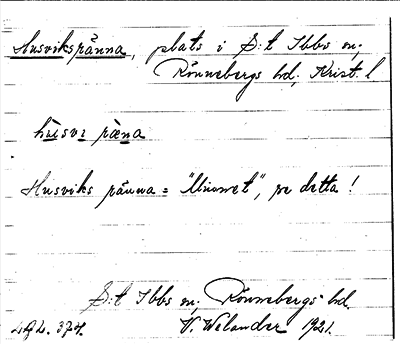 Husvikspänna, plats i S:t Ibbs sn;
Rönnebergs hd; Krist. l
husvi pæna
Husviks pänna = "Uluvnet", se detta !
S:t Ibbs sn; Rönnebergs hd.
LGL. 374. V. Welander 1921.